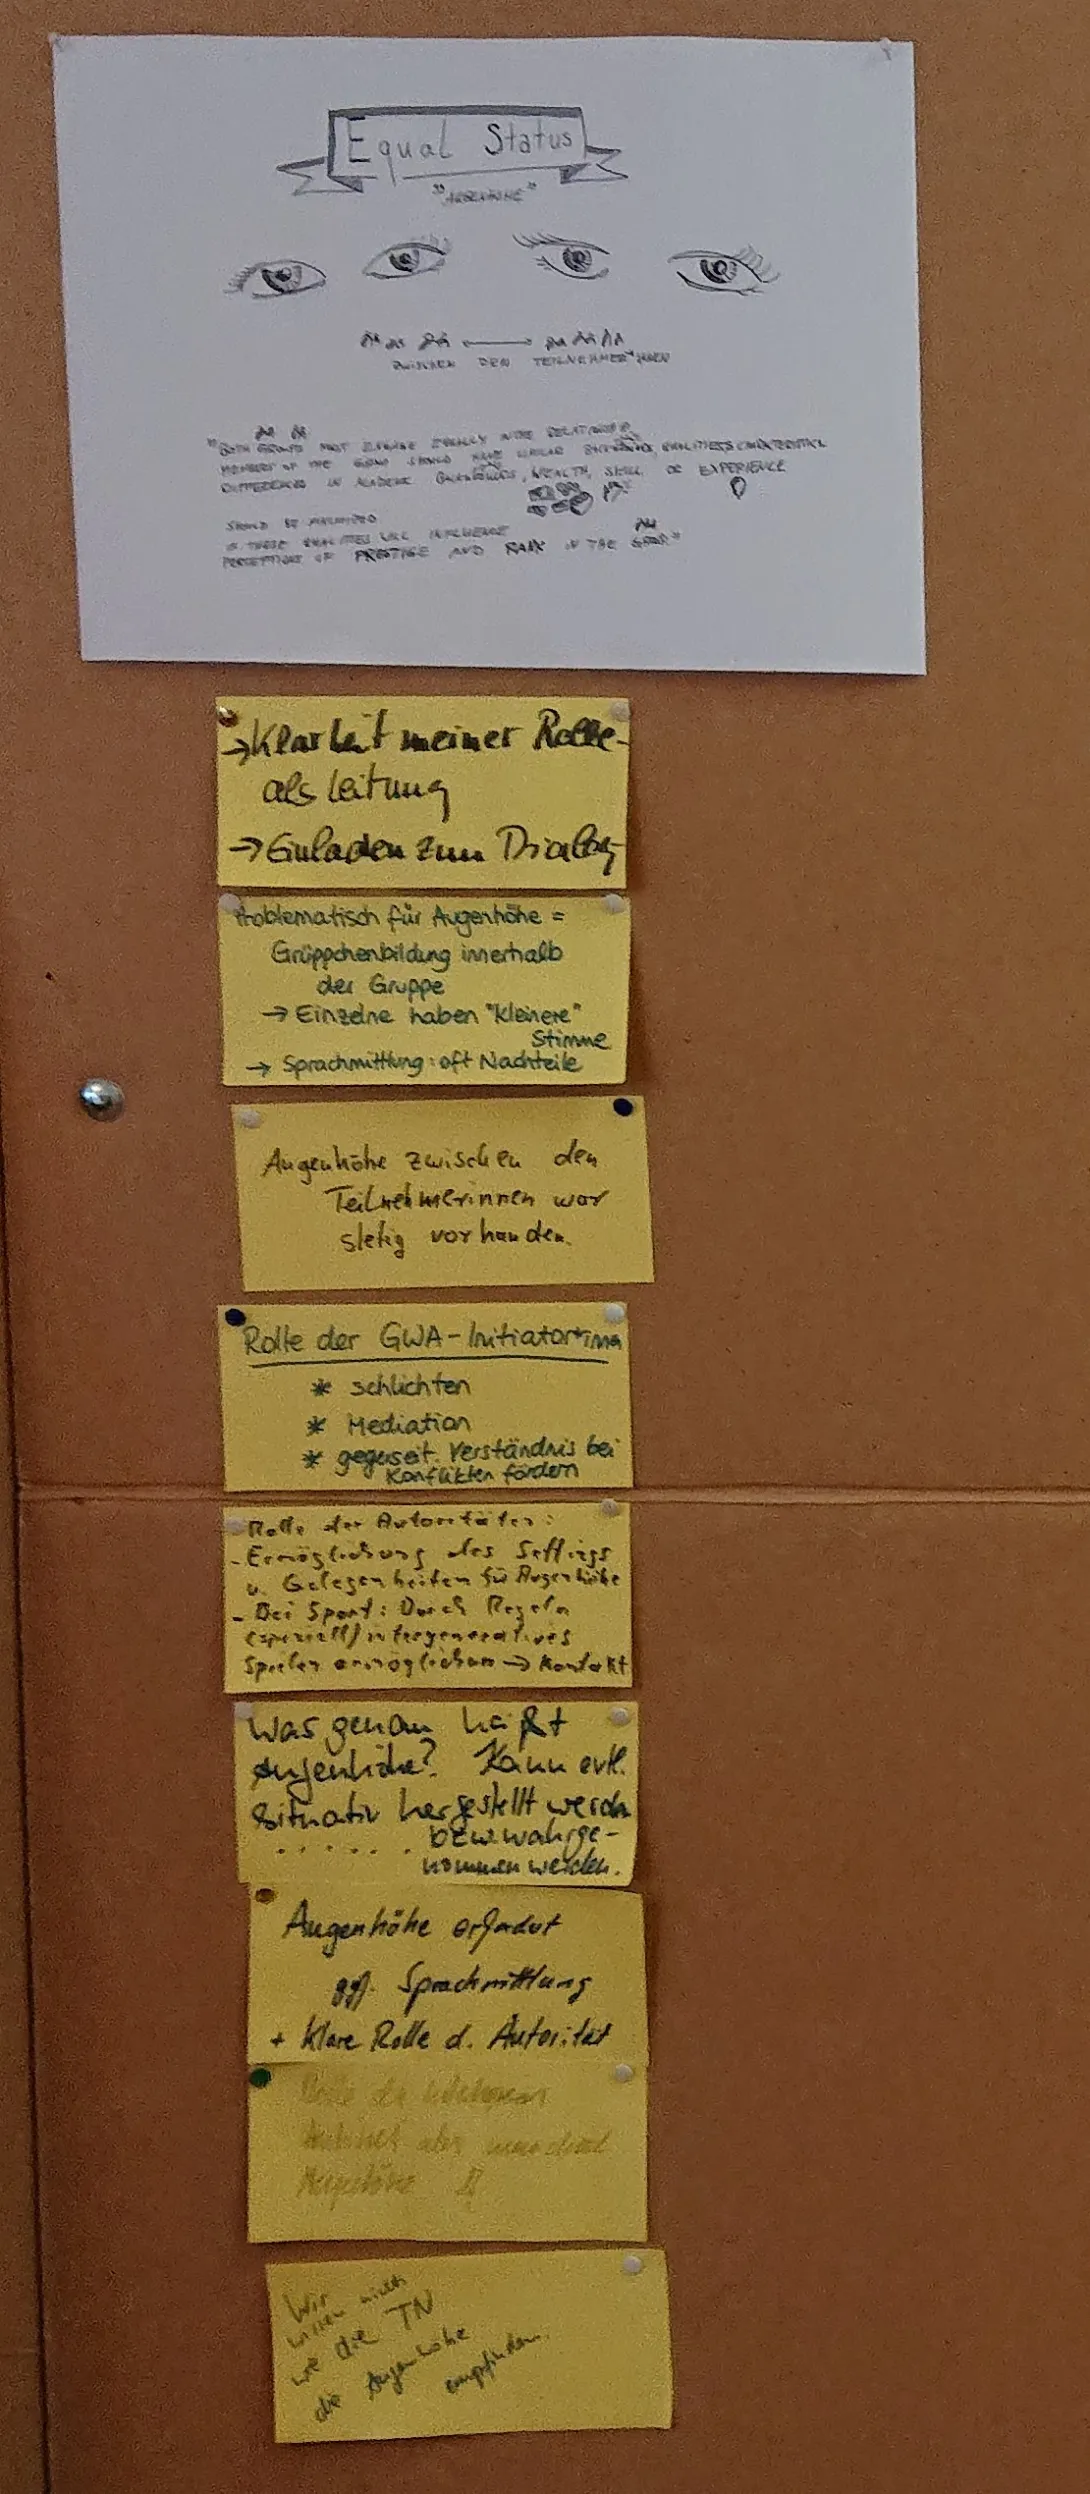 Equal Status
"AUGENHÖHE"
ZWISCHEN DEN TEILNEHMER*INNEN
"BOTH GROUPS MUST ENGAGE EQUALLY IN THE RELATIONSHIP.
MEMBERS OF THE GROUP SHOULD HAVE SIMILAR BACKGROUNDS, QUALITIES, CHARACTERISTICS.
DIFFERENCES IN ACADEMIC BACKGROUNDS, WEALTH, SKILL OR EXPERIENCE
SHOULD BE MINIMIZED
IF THESE QUALITIES WILL INFLUENCE
PERCEPTIONS OF PRESTIGE AND RANK IN THE GROUP."
→ Klarheit meiner Rolle
als Leitung
→ Einladen zum Dialog
Problematisch für Augenhöhe =
Grüppchenbildung innerhalb
der Gruppe
→ Einzelne haben "kleinere"
Stimme
→ Sprachmittlung: oft Nachteile
Augenhöhe zwischen den
Teilnehmerinnen war
stetig vorhanden.
Rolle der GWA-Initiator*inna
* schlichten
* Mediation
* gegenseit. Verständnis bei
Konflikten fördern
Rolle der Autoritäten:
- Ermöglichung des Settings
u. Gelegenheiten für Augenhöhe
- Bei Sport: Durch Regeln
(speziell) intergeneratives
Spielen ermöglichen → Kontakt
Was genau heißt
Augenhöhe? Kann evtl.
situativ hergestellt werden
bzw. wahrge-
nommen werden.
Augenhöhe erfordert
ggf. Sprachmittlung
+ Klare Rolle d. Autorität
Rolle der
aber manchmal
Augenhöhe
Wir
wissen nicht
wie die TN
die Augenhöhe
empfinden.